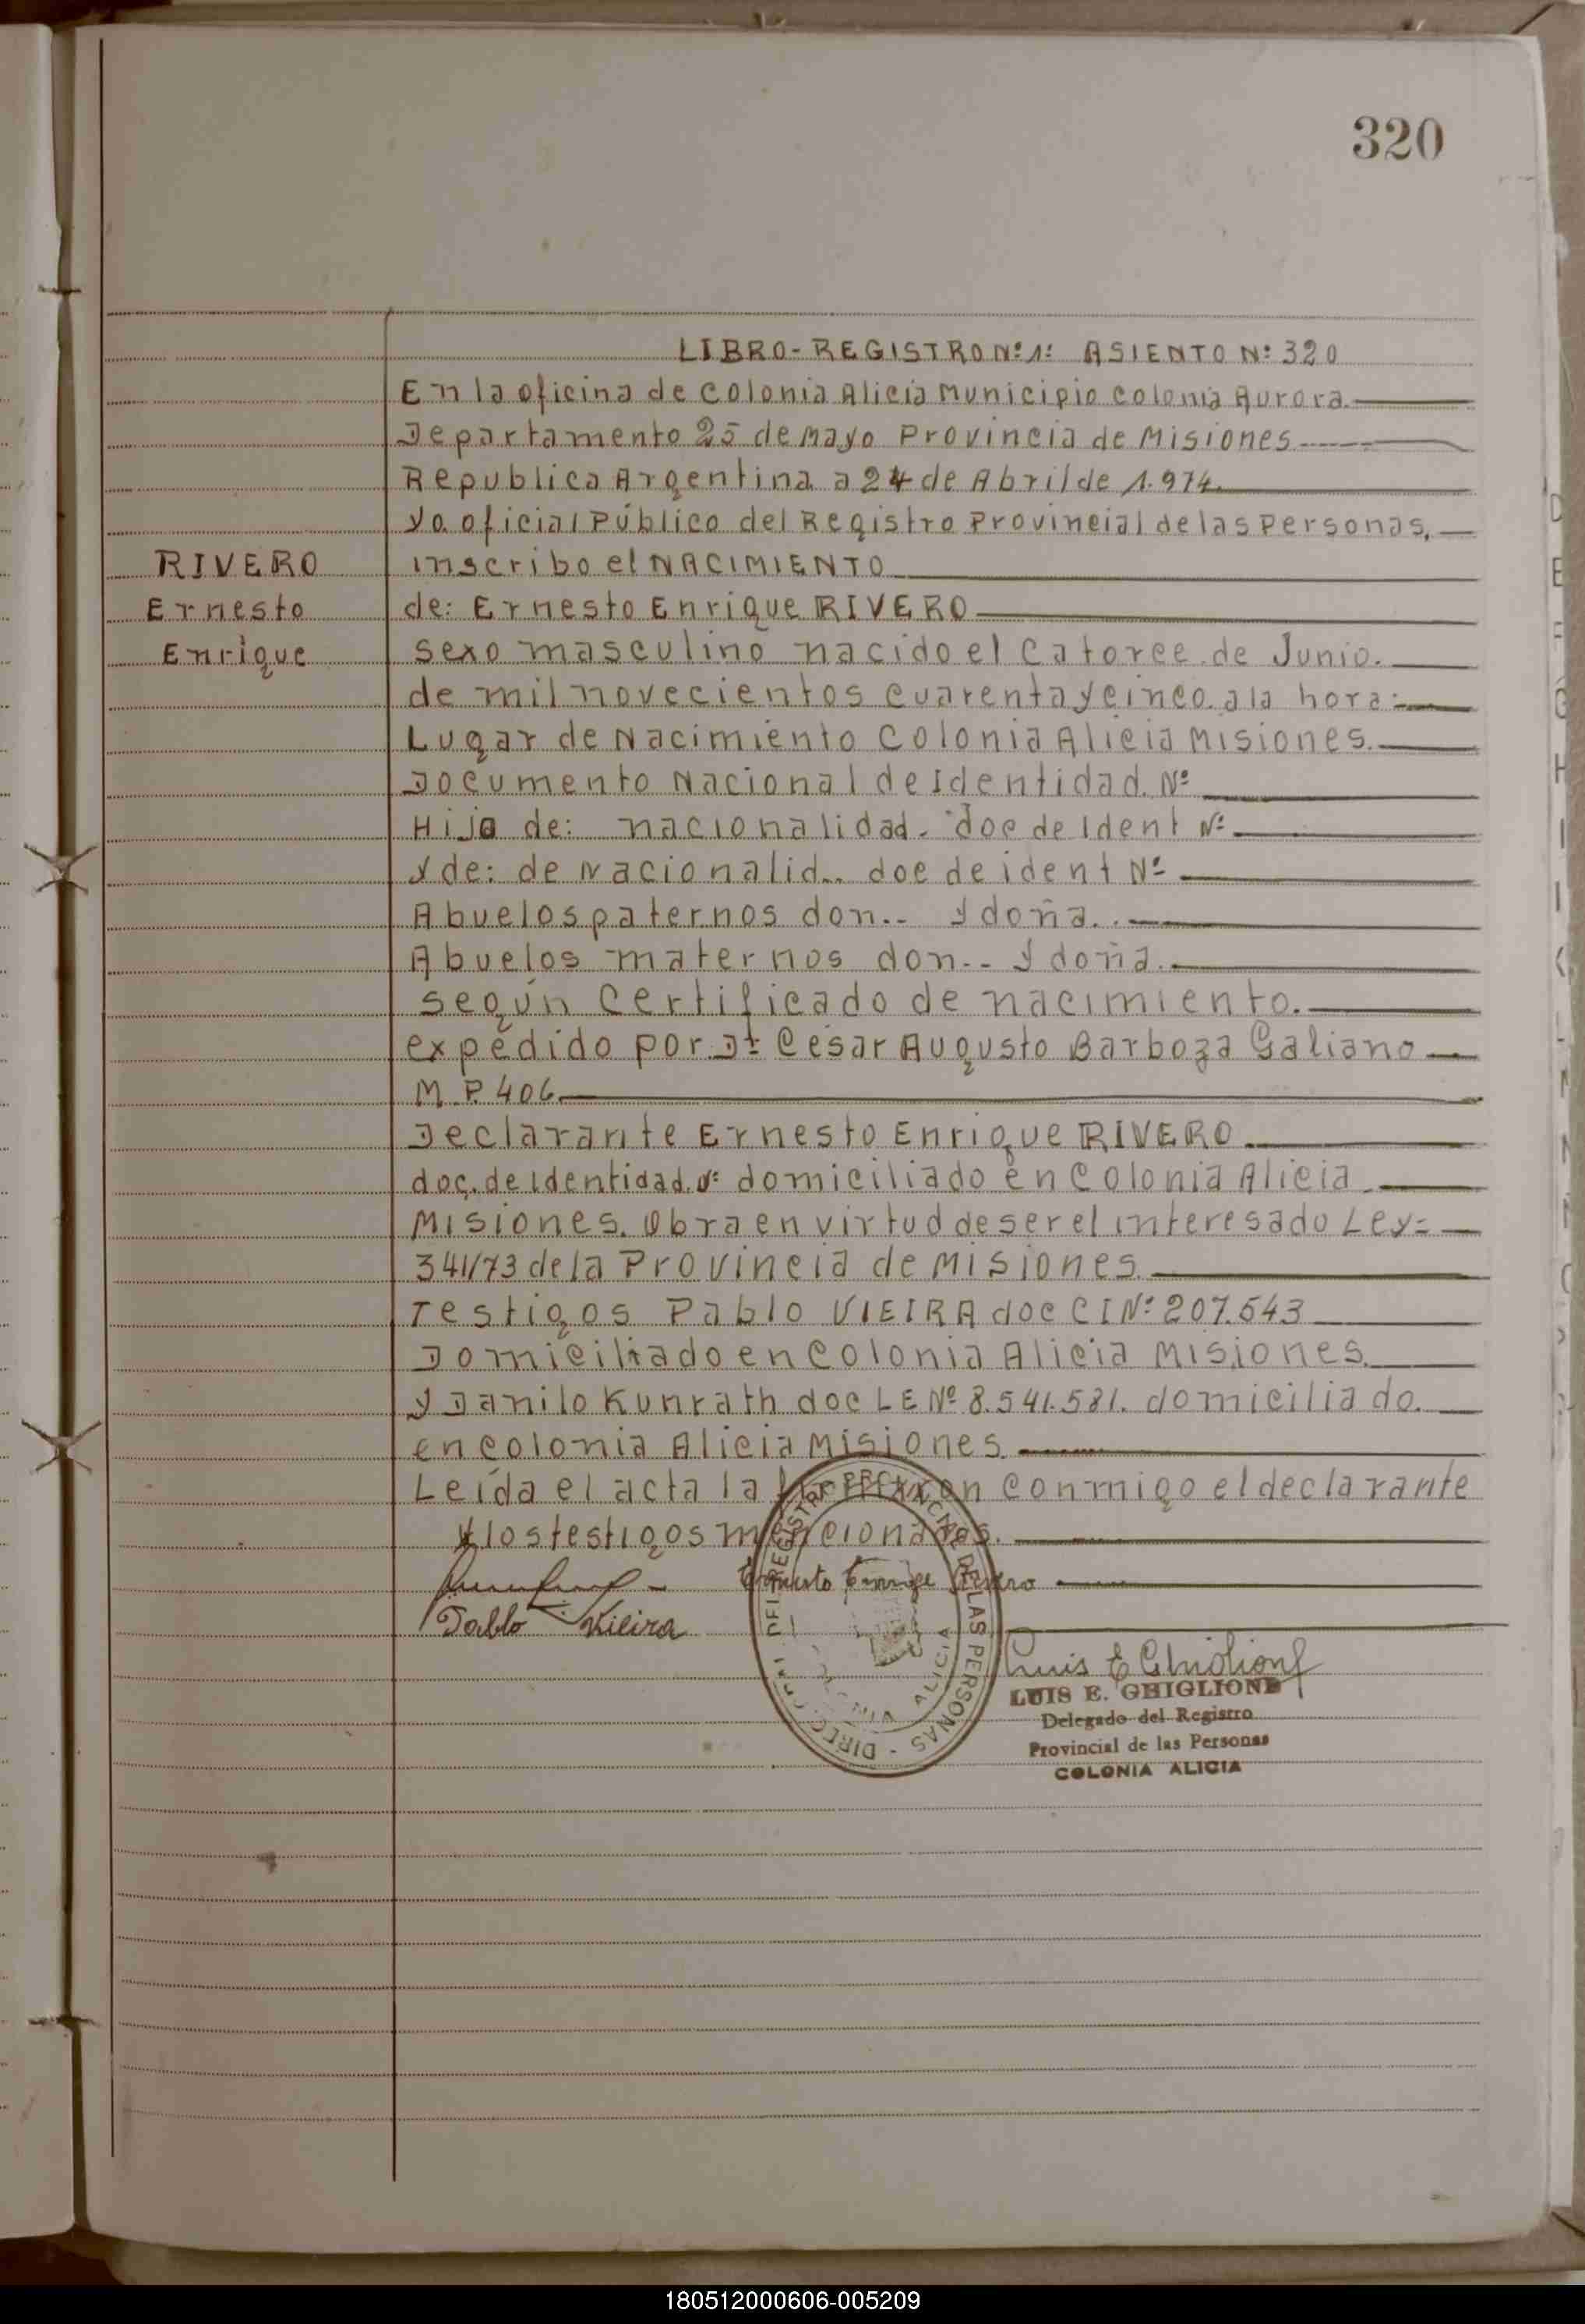 320
LIBRO-REGISTRO Nº 1: ASIENTO Nº 320
En la oficina de Colonia Alicia Municipio Colonia Aurora.
Departamento 25 de Mayo Provincia de Misiones
Republica Argentina a 24 de Abril de 1.974.
Yo. oficial Público del Registro Provincial de las Personas,
RIVERO
inscribo el NACIMIENTO
Ernesto
de: Ernesto Enrique RIVERO
Enrique
sexo masculino nacido el Catorce de Junio.
de mil novecientos cuarenta y cinco. a la hora:
Lugar de Nacimiento Colonia Alicia Misiones.
Documento Nacional de Identidad. Nº
Hijo de: nacionalidad. doc de Ident Nº
Y de: de Nacionalid.. doc de ident Nº
Abuelos paternos don.. Y doña..
Abuelos maternos don.. Y doña.
según Certificado de nacimiento.
expédido por Dr. César Augusto Barboza Galiano
M.P. 406.
Declarante Ernesto Enrique RIVERO
doc. de Identidad. Nº domiciliado en Colonia Alicia
Misiones. Obra en virtud de ser el interesado Ley=
341/73 de la Provincia de Misiones
Testigos Pablo VIEIRA doc C I Nº 207.543
Domiciliado en Colonia Alicia Misiones.
Y Danilo Kunrath doc L E Nº 8.541.581. domiciliado.
en colonia Alicia Misiones
Leída el acta la conmigo el declarante
Y los testigos mencionados.
Ernesto Enrique Rivero
Pablo Vieira
REGISTRO PROVINCIAL DE LAS PERSONAS - DIRECC
ALICIA
Luis E Ghiglione
LUIS E. GHIGLIONE
Delegado del Registro
Provincial de las Personas
COLONIA ALICIA
180512000606-005209